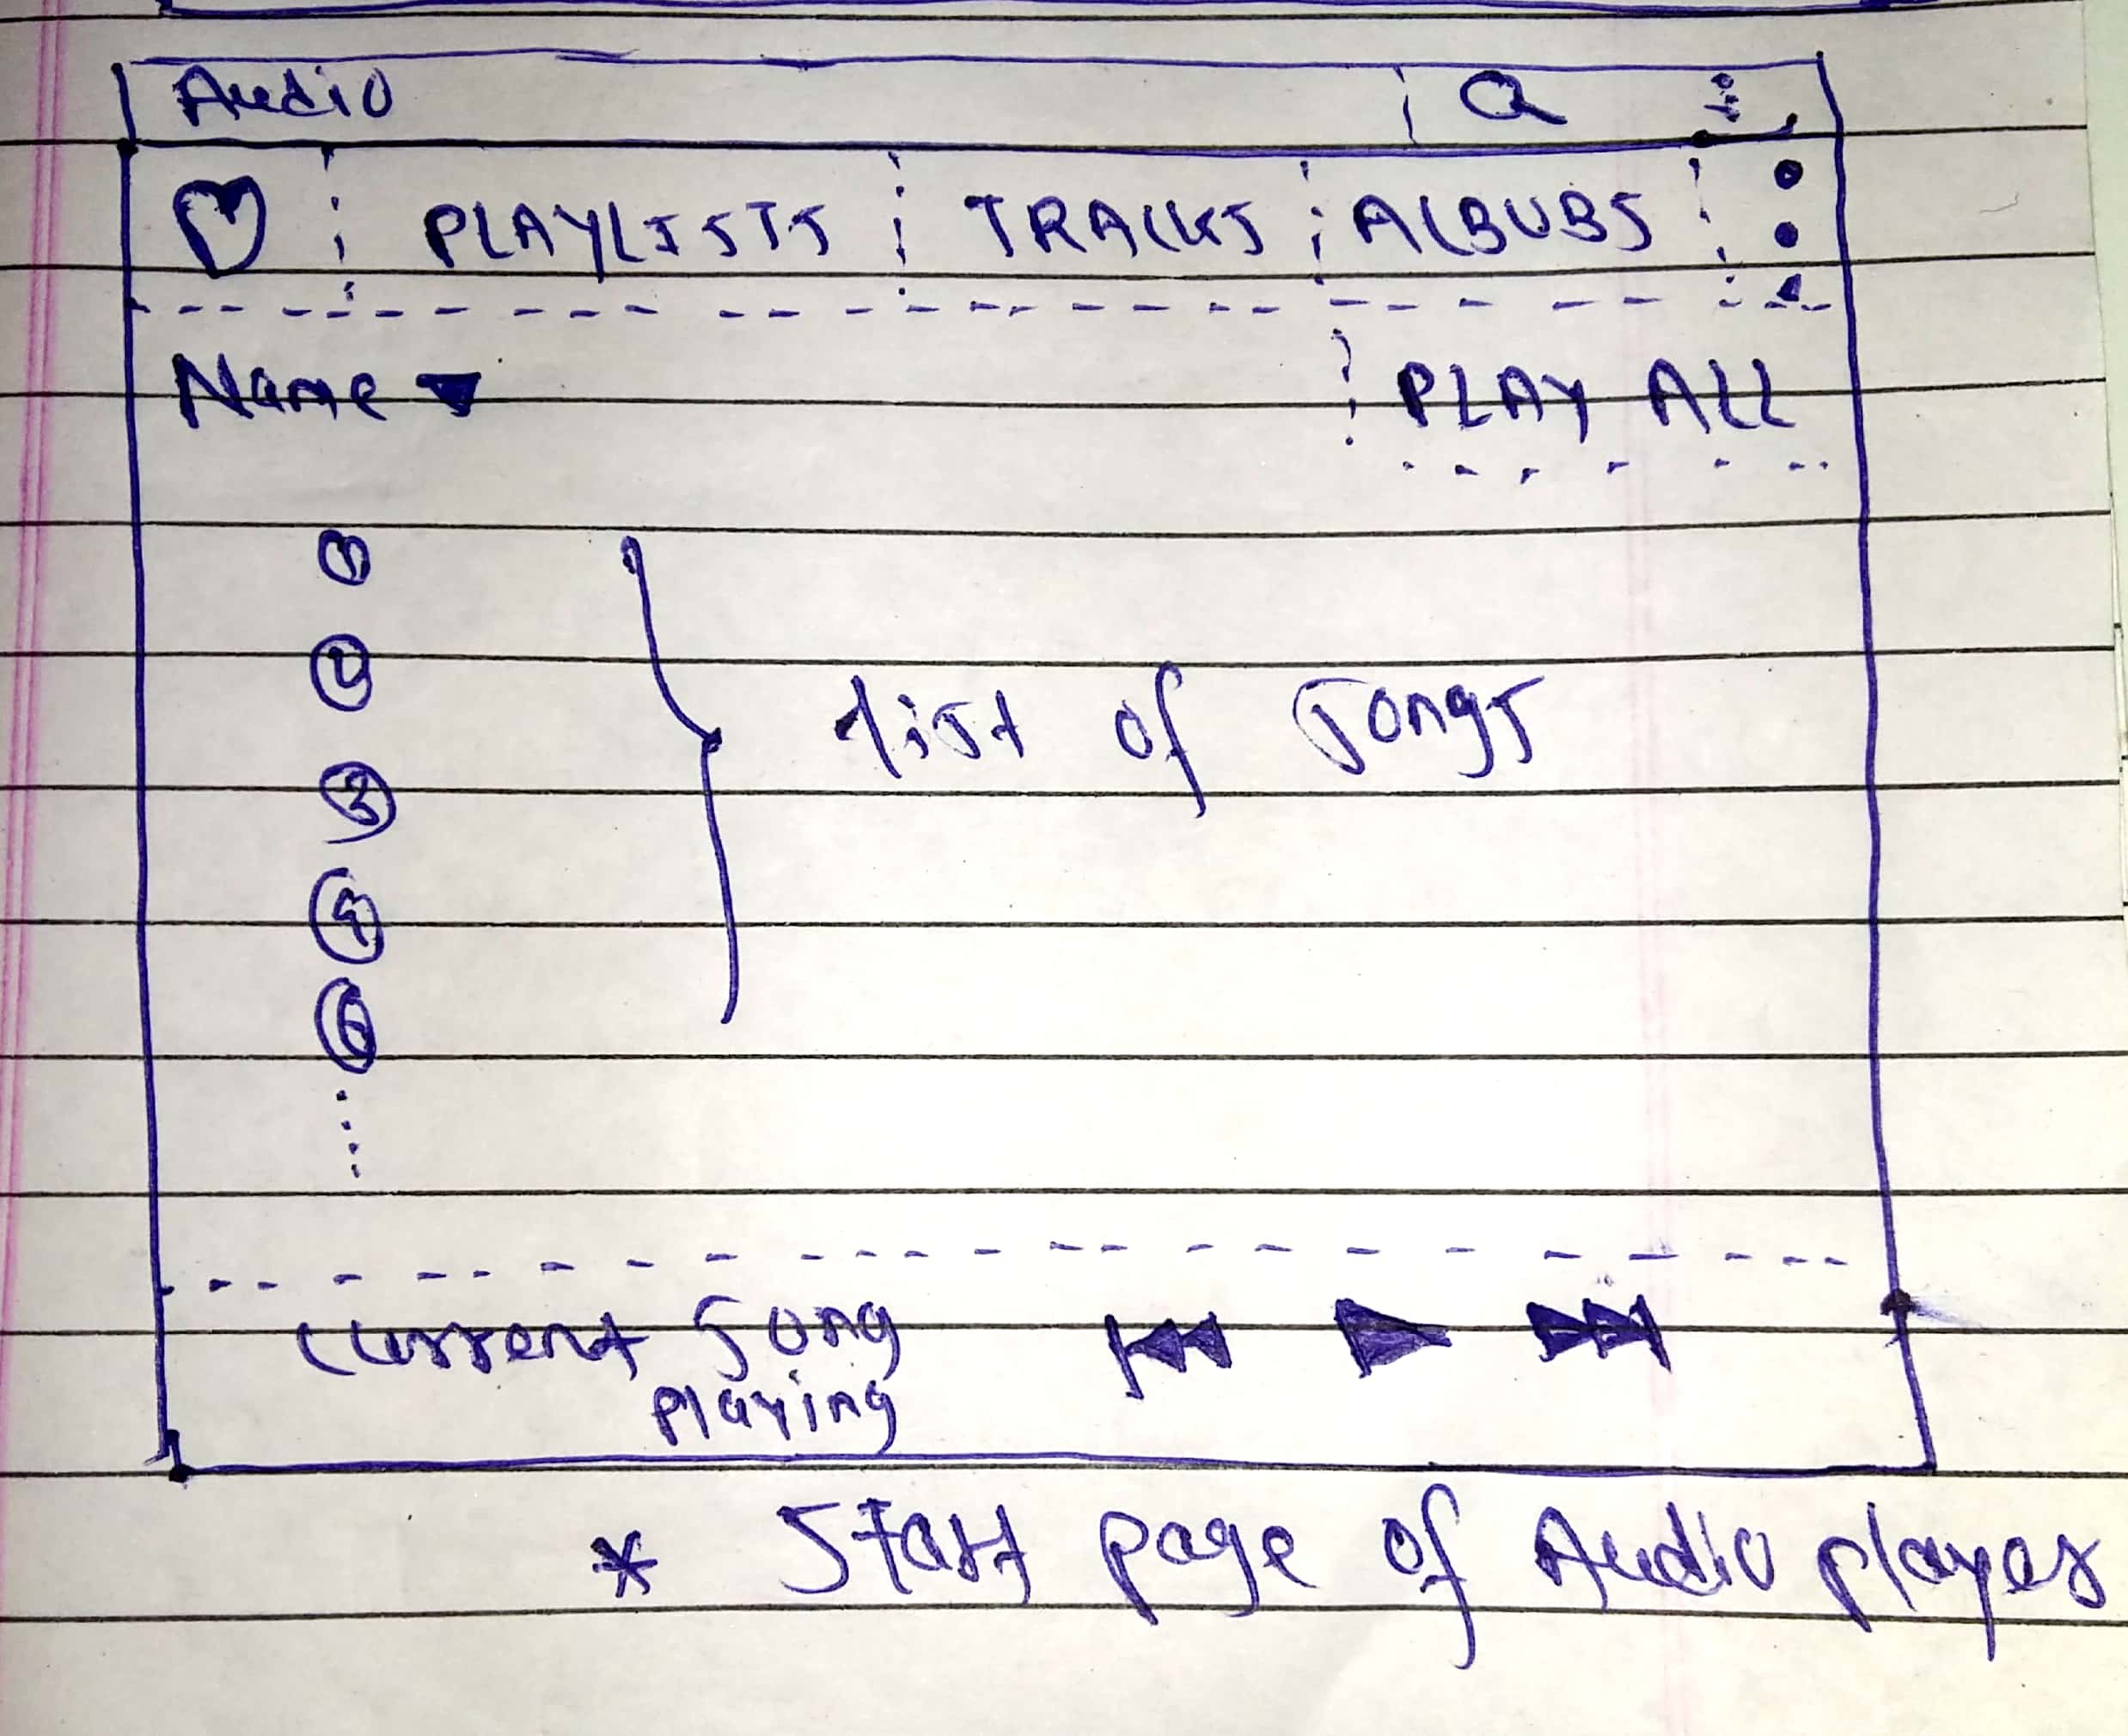 Audio
PLAYLISTS TRACKS ALBUBS
Name PLAY ALL
1
2
3
list of Songs
Current Song
playing
* Start page of Audio player